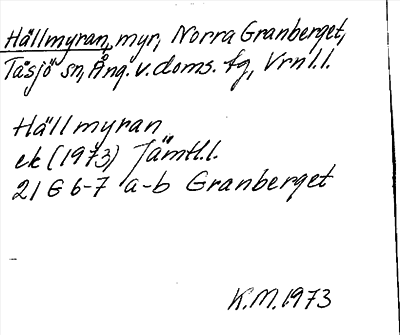 Hällmyran, myr, Norra Granberget,
Tåsjö sn, Ång. v. doms. fg, Vrnl.l.
Hällmyran
ek (1973) Jämtl.l.
21 G 6-7 a-b Granberget
K.M. 1973